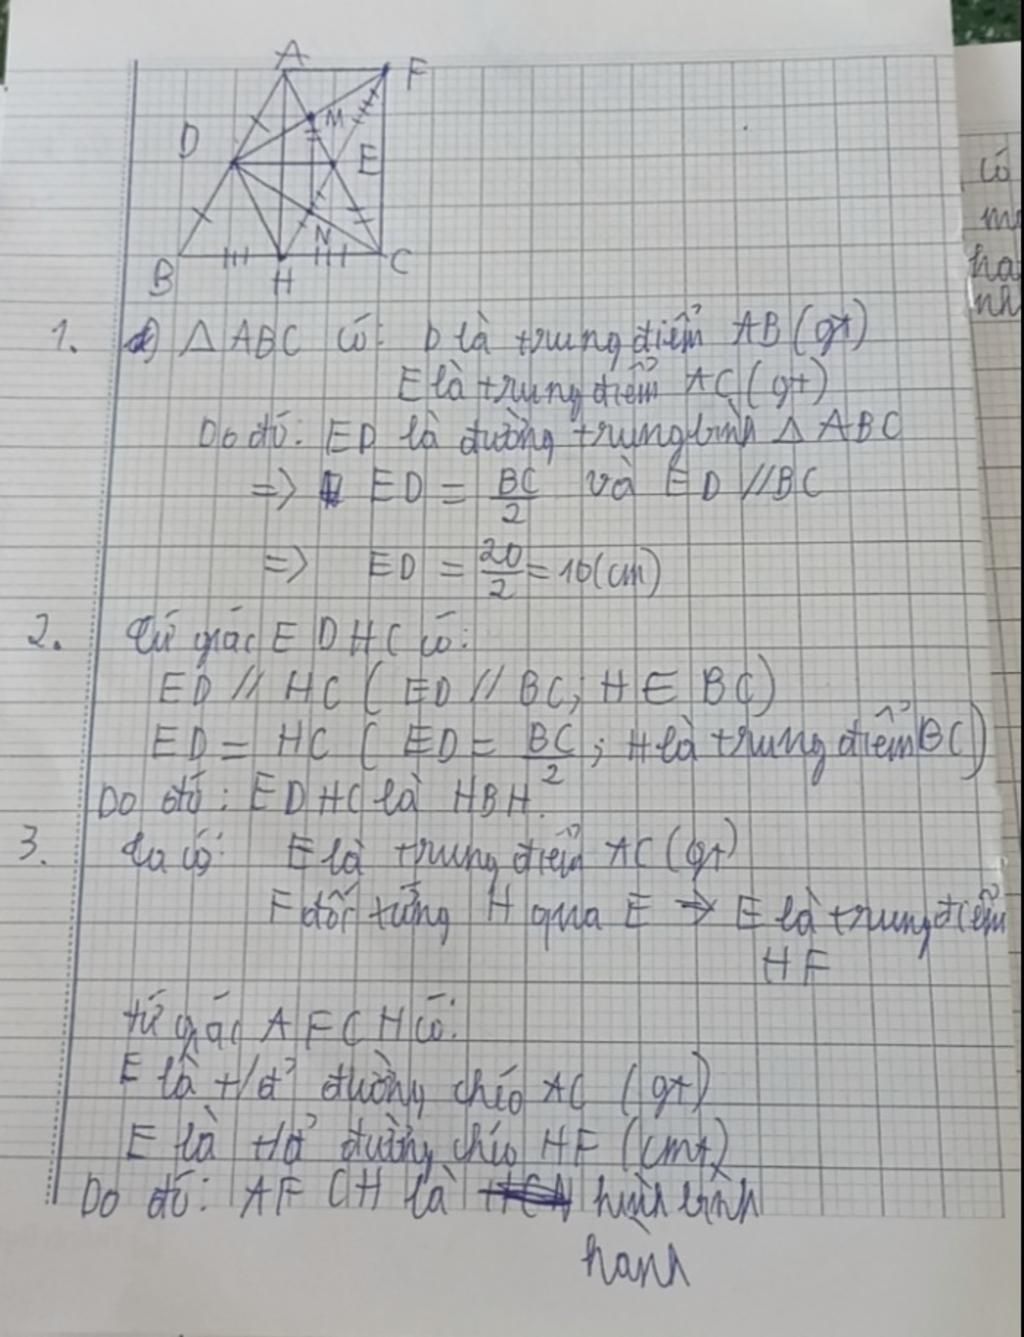 A F
D M E
N
B H C
1. a) △ ABC có: D là trung điểm AB (gt)
E là trung điểm AC (gt)
Do đó: ED là đường trung bình △ ABC
=> ED = BC/2 và ED // BC
=> ED = 20/2 = 10(cm)
2. Tứ giác EDHC có:
ED // HC ( ED // BC; H ∈ BC)
ED = HC ( ED = BC/2 ; H là trung điểm BC)
Do đó: EDHC là HBH.
3. Ta có: E là trung điểm AC (gt)
F đối tứng H qua E → E là trung điểm
HF
tứ giác AFCH có:
E là t/đ' đường chéo AC (gt)
E là t/đ' đường chéo HF (cmt)
Do đó: AFCH là hình bình
hành
có